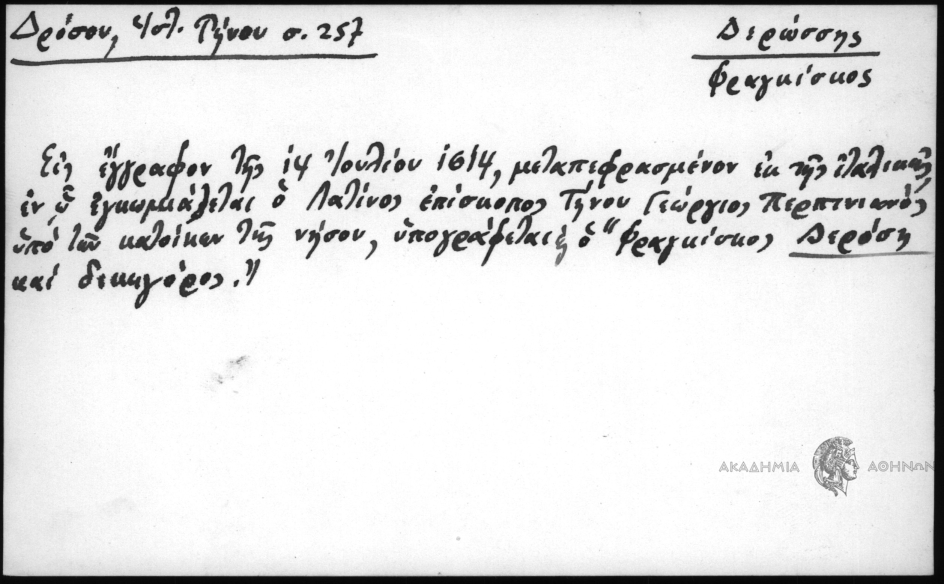 Δρόσου, Ἱστ. Τήνου σ. 257
Δερώσσης
Φραγκίσκος
Εἰς ἔγγραφον τῆς 14 Ἰουλίου 1614, μεταπεφρασμένον ἐκ τῆς ἰταλικῆς,
ἐν ᾧ ἐγκωμιάζεται ὁ Λατίνος ἐπίσκοπος Τήνου Γεώργιος Περπινιανός
ὑπό τῶν κατοίκων τῆς νήσου, ὑπογράφεται ὁ "Φραγκίσκος Δερόση
καί δικηγόρος."
ΑΚΑΔΗΜΙΑ ΑΘΗΝΩΝ